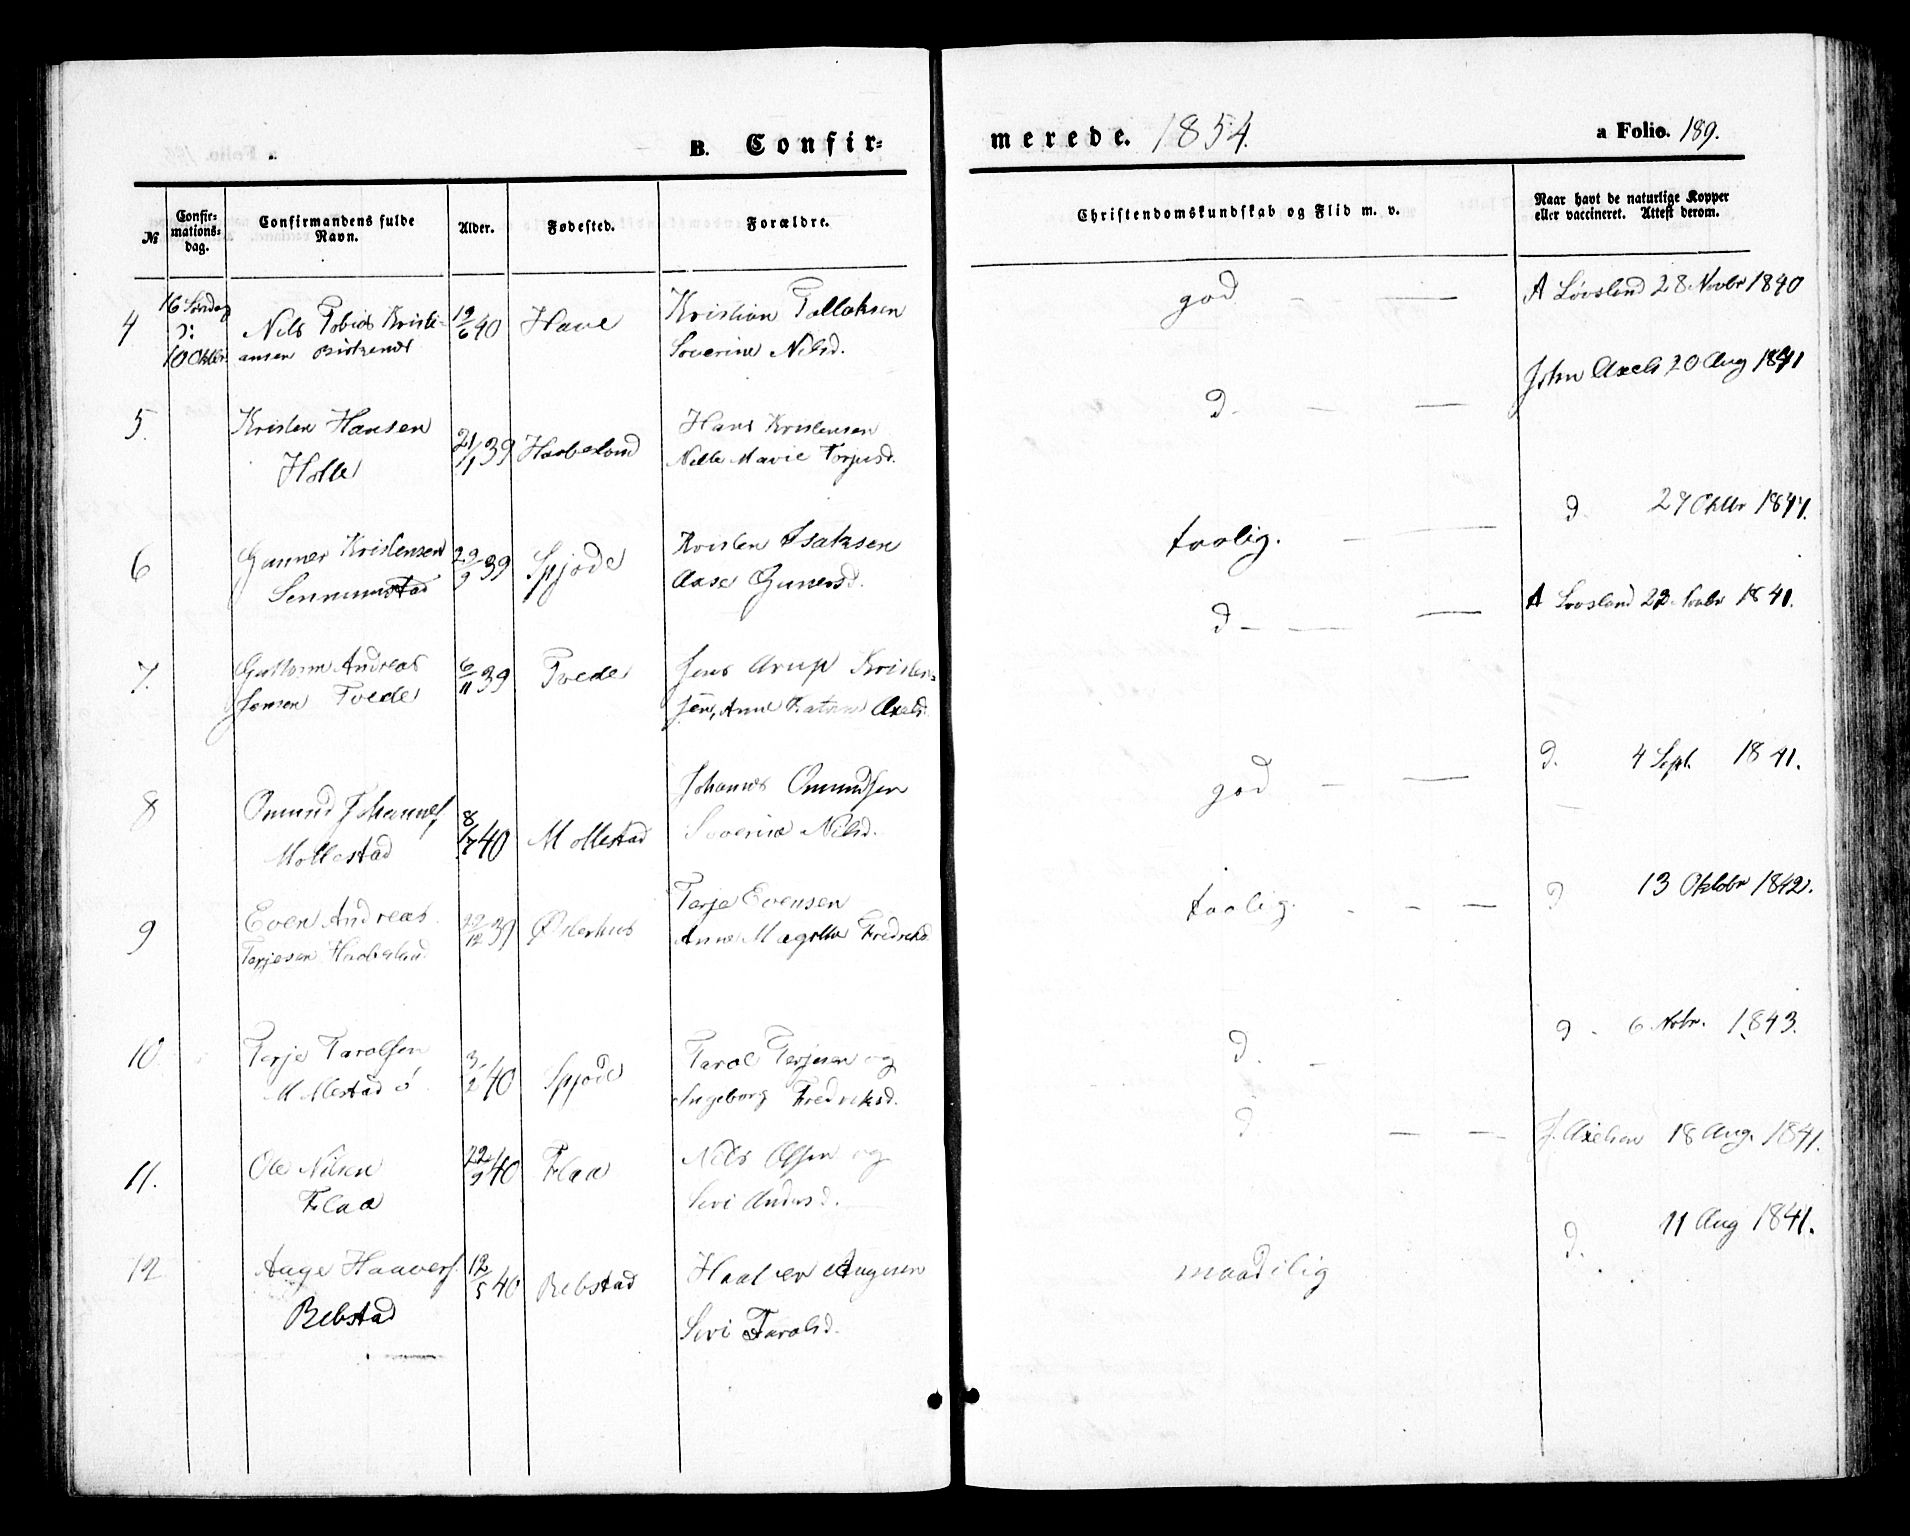 B. Confir-
merede. 1854.
a Folio. 189.
№
Confir-
mations-
dag.
Confirmandens fulde
Navn.
Alder.
Fødested.
Forældre.
Christendomskundskab og Flid m. v.
Naar havt de naturlige Kopper
eller vaccineret. Attest derom.
4
16 Søndag
d:
10 Oktbr
Nils Tobias Kristi-
ansen Birkenes
19/6 40
Have
Kristian Tallaksen
Severine Nilsd.
god — —
A Løvsland 28 Novbr 1840
5.
Kristen Hansen
Holte
21/1 39
Haabeland
Hans Kristensen
Nille Marie Torjusd.
d. — —
John Axels 20 Aug 1841
6
Gunner Kristensen
29/9 39
Spjode
Kristen Isaksen
Aase Gunersd.
taalig. — —
d. 27 Oktbr 1841.
7.
Guttorm Andreas
Jensen Tvede
6/11 39
Tvede
Jens Arup Kristen-
sen, Anne Katrine Axelsd.
d — — —
A Løvsland 22 Novbr 1841.
8
Omund Johannes,
Mollestad
8/7 40
Mollestad
Johannes Omundsen
Severine Nilsd.
god — —
d. 4 Sept. 1841.
9
Even Andreas
Terjesen Haabeland
22/12 39
Østerhus
Terje Evensen
Anne Magrethe Fredriksd.
taalig. - — —
d 13 Oktobr 1842.
10
Terje Tarolsen
Mollestad ø
3/2 40
Spjode
Tarol Terjesen og
Ingeborg Fredriksd.
d. —
d. 6 Nobr. 1843.
11.
Ole Nilsen
Flaa
22/9 40
Flaa
Nils Olsen og
Sivi Andersd.
d. — — —
J. Axelsen 18 Aug. 1841.
12
Auge Haavers.
Rebstad
12/5 40
Rebstad
Haaver Augesen
Sivi Tarolsd.
maadelig
d. 11 Aug 1841.